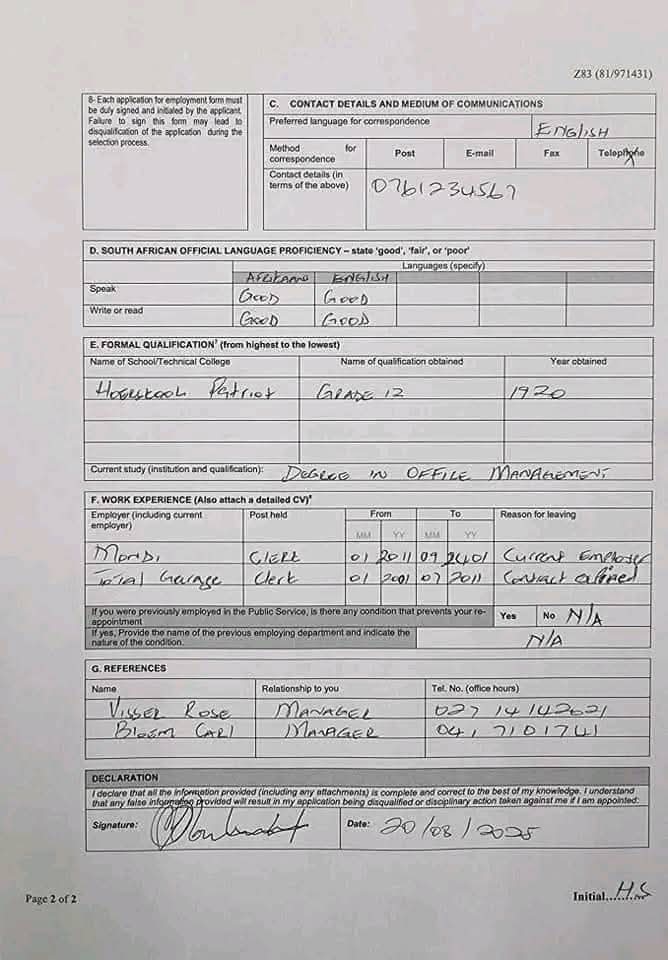 Z83 (81/971431)
8- Each application for employment form must
be duly signed and initialed by the applicant.
Failure to sign this form may lead to
disqualification of the application during the
selection process.
C. CONTACT DETAILS AND MEDIUM OF COMMUNICATIONS
Preferred language for correspondence ENGLISH
Method for correspondence Post E-mail Fax Telephone
Contact details (in terms of the above) 0761234567
D. SOUTH AFRICAN OFFICIAL LANGUAGE PROFICIENCY – state 'good', 'fair', or 'poor'
Languages (specify)
AFRIKAANS ENGLISH
Speak GOOD GOOD
Write or read GOOD GOOD
E. FORMAL QUALIFICATION⁷ (from highest to the lowest)
Name of School/Technical College Name of qualification obtained Year obtained
HOERSKOOL Patriot GRADE 12 1920
Current study (institution and qualification): DEGREE IN OFFICE MANAGEMENT
F. WORK EXPERIENCE (Also attach a detailed CV)⁸
Employer (including current employer) Post held From To Reason for leaving
MM YY MM YY
Mondi CLERK 01 2011 09 2401 Current Employer
Total Garage Clerk 01 2001 07 2011 Contract expired
If you were previously employed in the Public Service, is there any condition that prevents your re-appointment Yes No N/A
If yes, Provide the name of the previous employing department and indicate the nature of the condition. N/A
G. REFERENCES
Name Relationship to you Tel. No. (office hours)
VISSER ROSE MANAGER 027 14142621
BLOEM CARL MANAGER 041 7101741
DECLARATION
I declare that all the information provided (including any attachments) is complete and correct to the best of my knowledge. I understand
that any false information provided will result in my application being disqualified or disciplinary action taken against me if I am appointed:
Signature: Date: 20/08/2025
Page 2 of 2 Initial H.S